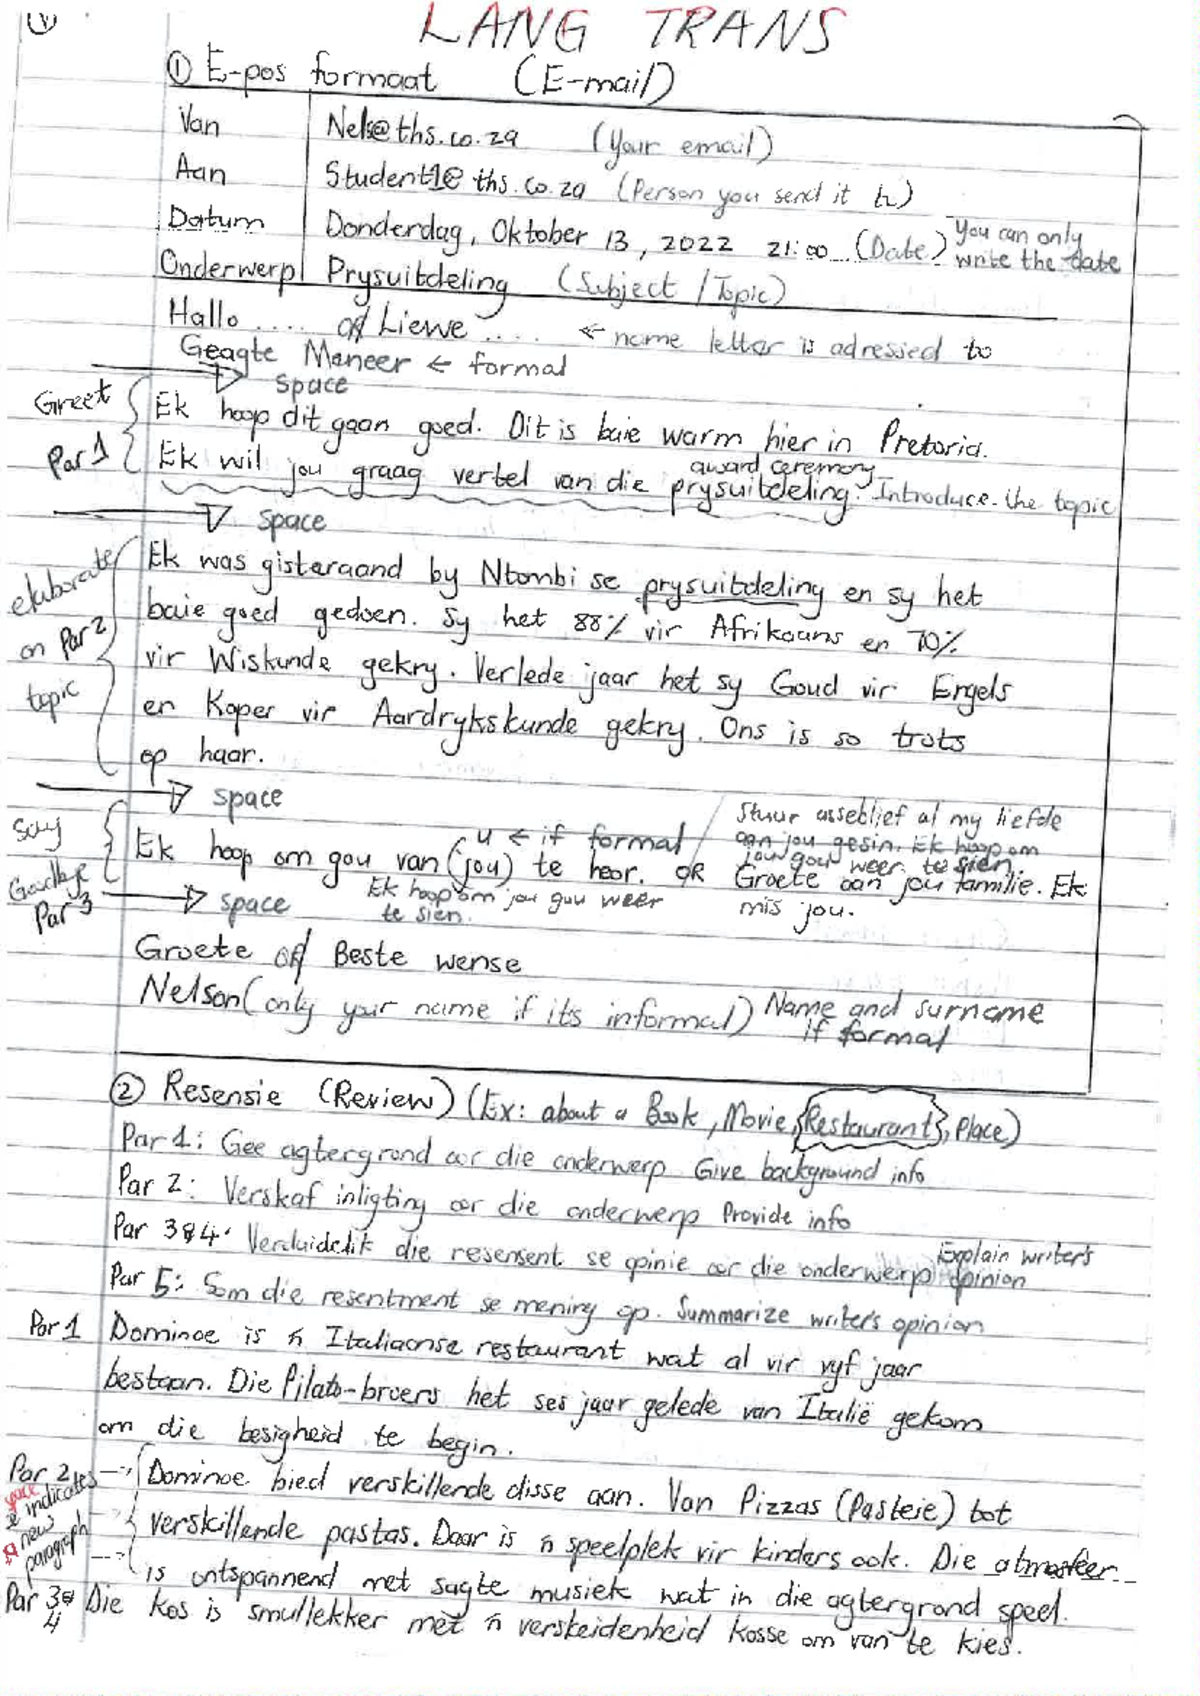 LANG TRANS
① E-pos formaat (E-mail)
Van Nels@ths.co.za (Your email)
Aan Student1@ths.co.za (Person you send it to)
Datum Donderdag, Oktober 13, 2022 21:00 (Date) You can only write the date
Onderwerp Prysuitdeling (Subject / Topic)
Hallo .... of Liewe .... ← name letter is adressed to
Geagte Meneer ← formal
space
Greet
Par 1
Ek hoop dit gaan goed. Dit is baie warm hier in Pretoria.
Ek wil jou graag vertel van die prysuitdeling. Introduce the topic
award ceremony
space
elaborate on Par 2 topic
Ek was gisteraand by Ntombi se prysuitdeling en sy het
baie goed gedoen. Sy het 88% vir Afrikaans en 70%
vir Wiskunde gekry. Verlede jaar het sy Goud vir Engels
en Koper vir Aardrykskunde gekry. Ons is so trots
op haar.
space
Say Goodbye Par 3
u ← if formal
Ek hoop om gou van (jou) te hoor. OR
Ek hoop om jou gou weer
te sien.
Stuur asseblief al my liefde
aan jou gesin. Ek hoop om
jou gou weer te sien.
Groete aan jou familie. Ek
mis jou.
space
Groete of Beste wense
Nelson (only your name if its informal) Name and surname
if formal
② Resensie (Review) (Ex: about a Book, Movie, Restaurant, Place)
Par 1: Gee agtergrond oor die onderwerp Give background info
Par 2: Verskaf inligting oor die onderwerp Provide info
Par 3&4: Verduidelik die resensent se opinie oor die onderwerp Explain writer's opinion
Par 5: Som die resentment se mening op. Summarize writer's opinion
Par 1 Dominoe is 'n Italiaanse restaurant wat al vir vyf jaar
bestaan. Die Pilato-broers het ses jaar gelede van Italië gekom
om die besigheid te begin.
Par 2 indicates new paragraph
Dominoe bied verskillende disse aan. Van Pizzas (Pasteie) tot
verskillende pastas. Daar is 'n speelplek vir kinders ook. Die atmosfeer
is ontspannend met sagte musiek wat in die agtergrond speel.
Par 3& 4 Die kos is smullekker met 'n verskeidenheid kosse om van te kies.